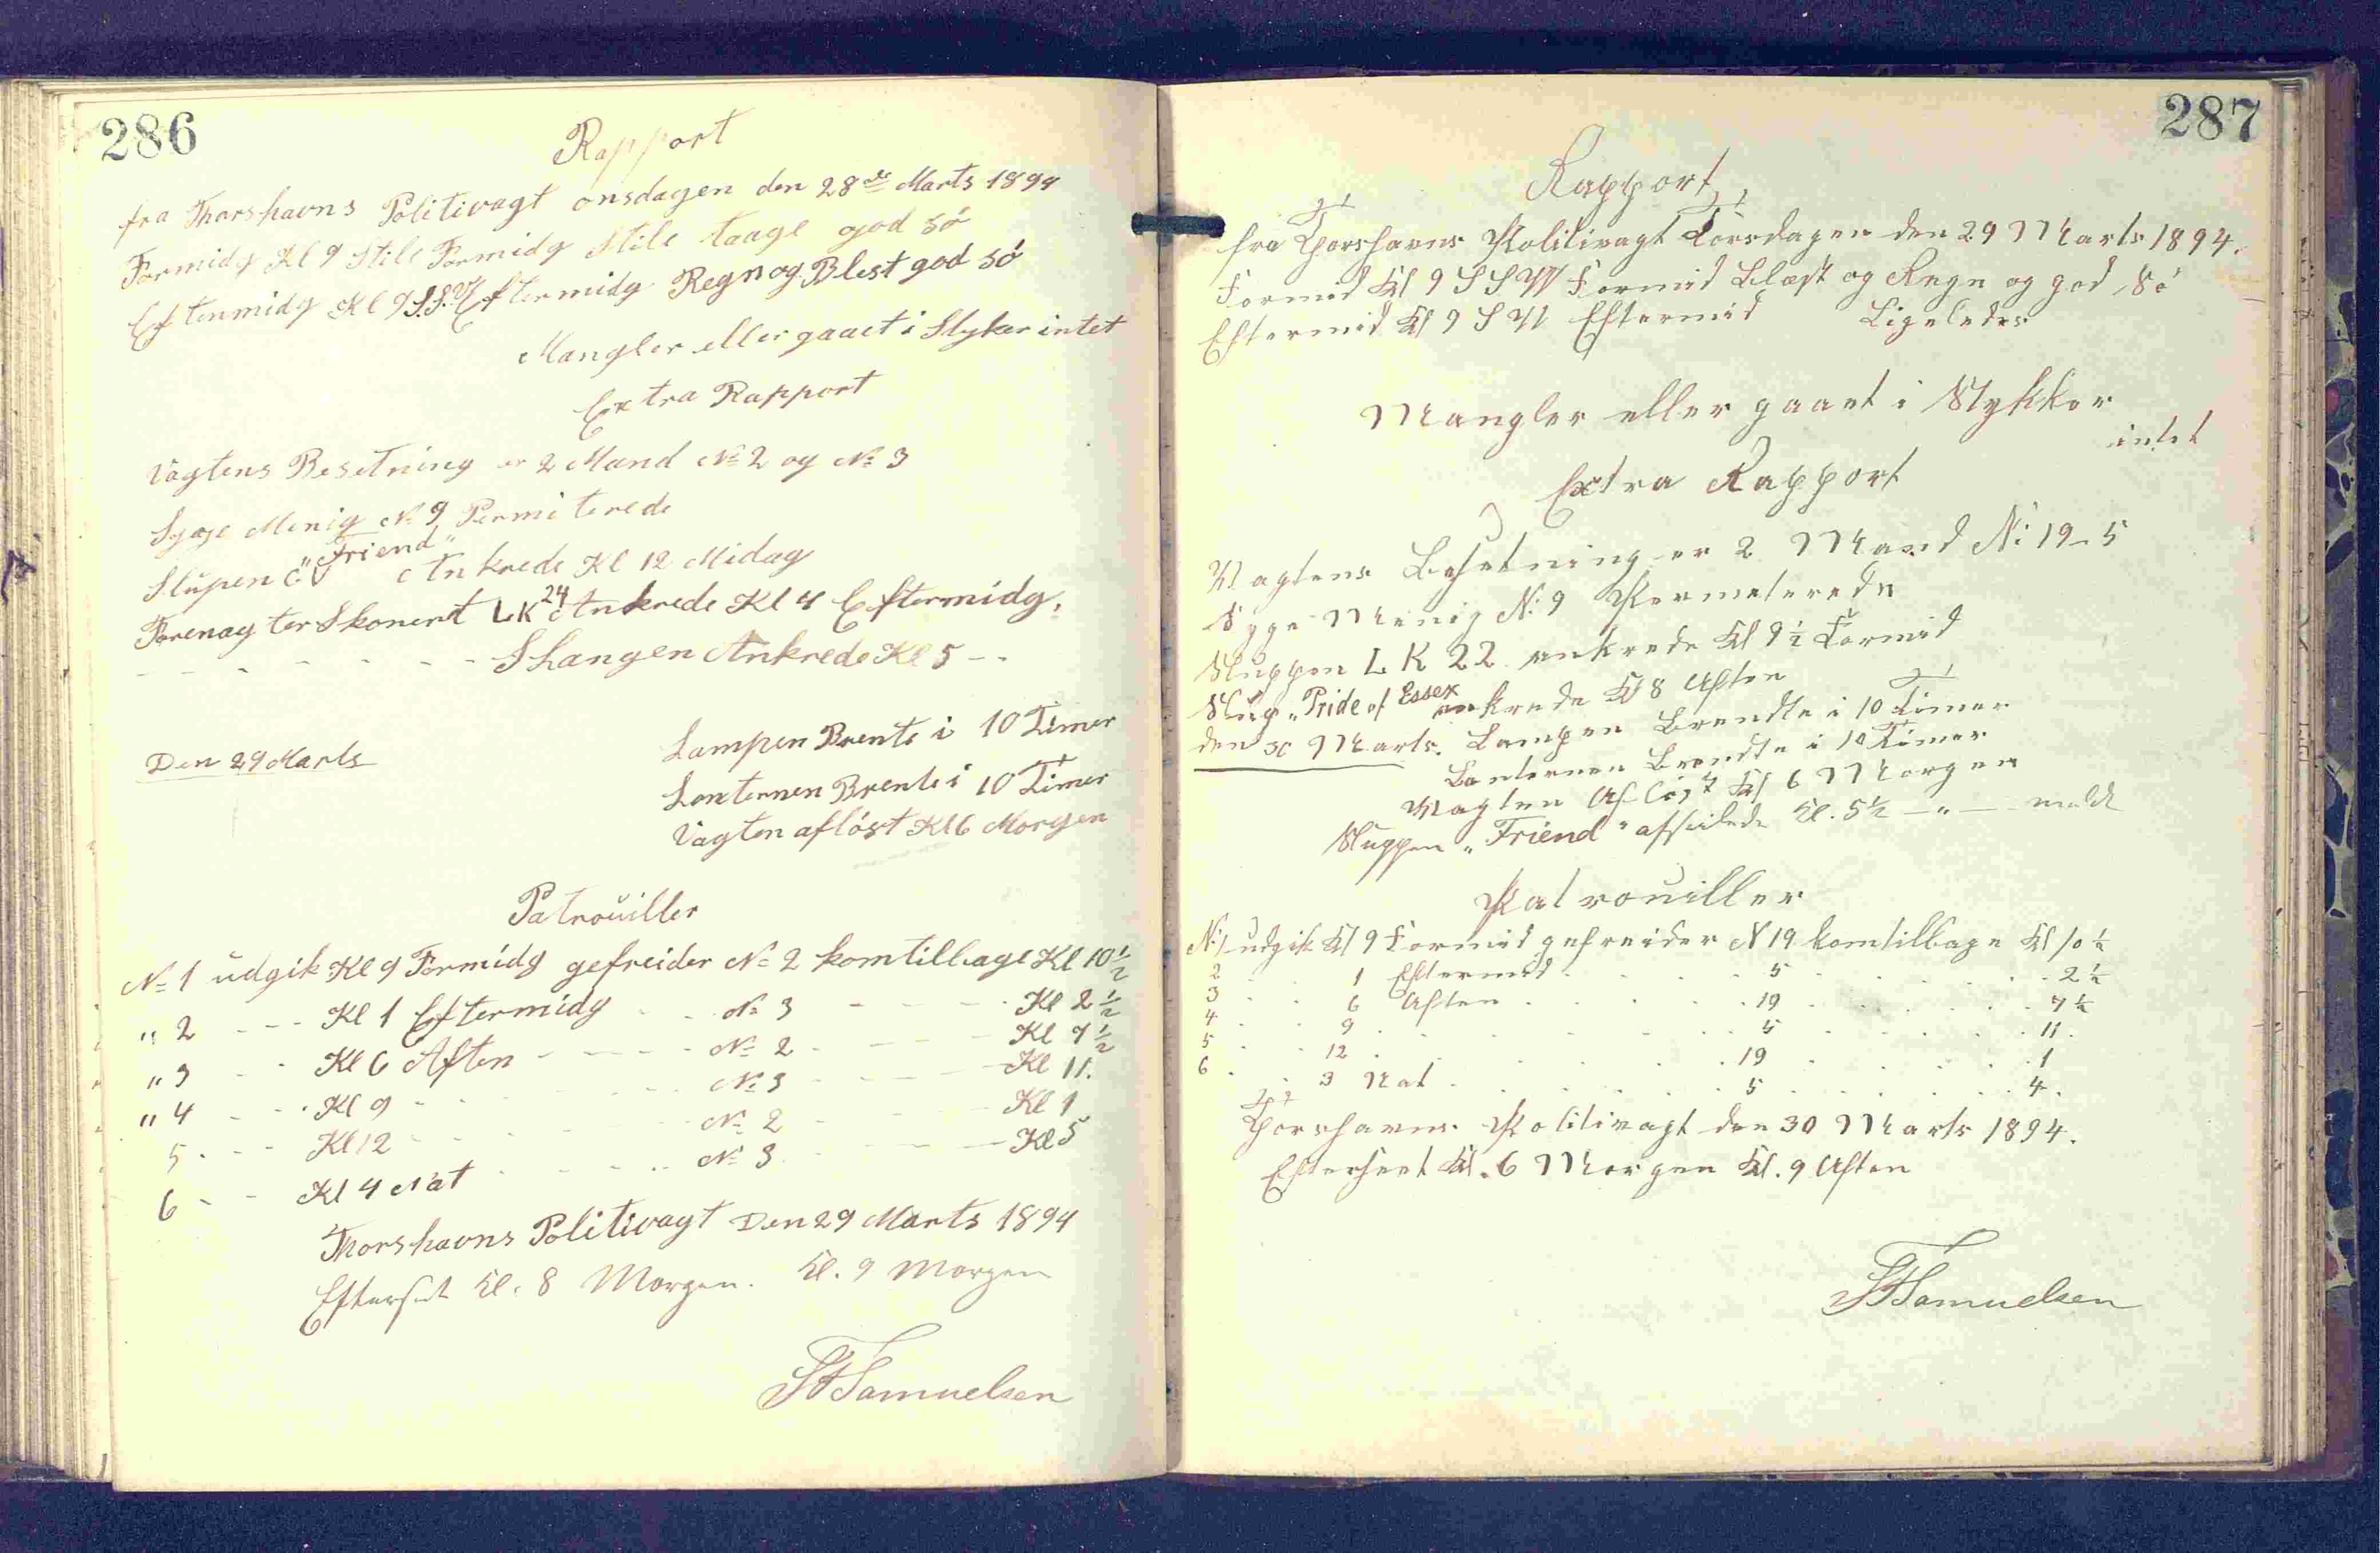 286
Rapport
fra Thorshavns Politivagt onsdagen den 28de Marts 1894
Formidg Kl 9 Stile Formidg Stile taage god Sö
Eftermidg Kl 9 S.S.V Eftermidg Regn og Blest god Sö
Mangler eller gaaet i Styker intet
Extra Rapport
Vagtens Besetning er 2 Mand No 2 og No 3
Syge Menig No 9 Permiterede
Slupen "Friend" Ankrede Kl 12 Midag
Skonert LK 24 Ankrede Kl 4 Eftermidg.
- - - - - - - Ankrede Kl 5 - -
Den 29 Marts
Lampen Brente i 10 Timer
Lanternen Brente i 10 Timer
Vagten aflöst Kl 6 Morgen
Patrouiller
No 1 udgik Kl 9 Formidg gefreider No 2 kom tilbage Kl 10 1/2
" 2 - - - Kl 1 Eftermidg - - No 3 - - - - Kl 2 1/2
" 3 - - Kl 6 Aften - - - - No 2 - - - - Kl 7 1/2
" 4 - - Kl 9 - - - - No 3 - - - - Kl 11.
5 - - - Kl 12 - - - - No 2 - - - - Kl 1
6 - - Kl 4 Nat - - - - No 3 - - - - Kl 5
Thorshavns Politivagt Den 29 Marts 1894
Efterset Kl. 8 Morgen. Kl. 9 Morgen
Samuelsen
287
Rapport
fra Thorshavns Politivagt Torsdagen den 29 Marts 1894.
Formid Kl 9 SSW Formid Blæst og Regn og god Sö
Eftermid Kl 9 SW Eftermid Ligeledes
Mangler eller gaaet i Stykker
intet
Extra Rapport
Wagtens Besetning er 2 Mand No 19 - 5
Syge Menig No 9 Permeterede
Sluppen LK 22 ankrede Kl 9 1/2 Formid
Slup „Pride of Essex ankrede Kl 8 Aften
den 30 Marts. Lampen Brendte i 10 Timer
Lanternen Brendte i 10 Timer
Wagten Aflöst Kl 6 Morgen
Sluppen „Friend" afseilede Kl. 5 1/2 — " —
Patrouiller
No 1 udgik Kl 9 Formid gefreider N 19 kom tilbage Kl 10 1/2
2 . . 1 Eftermid . . . 5 . . . 2 1/2
3 . . 6 Aften . . . 19 . . . 7 1/2
4 . . 9 . . . 5 . . . 11.
5 . . 12 . . . 19 . . . 1
6 . . 3 Nat . . . 5 . . . 4.
Thorshavns Politivagt den 30 Marts 1894.
Efterseet Kl. 6 Morgen Kl. 9 Aften
Samuelsen